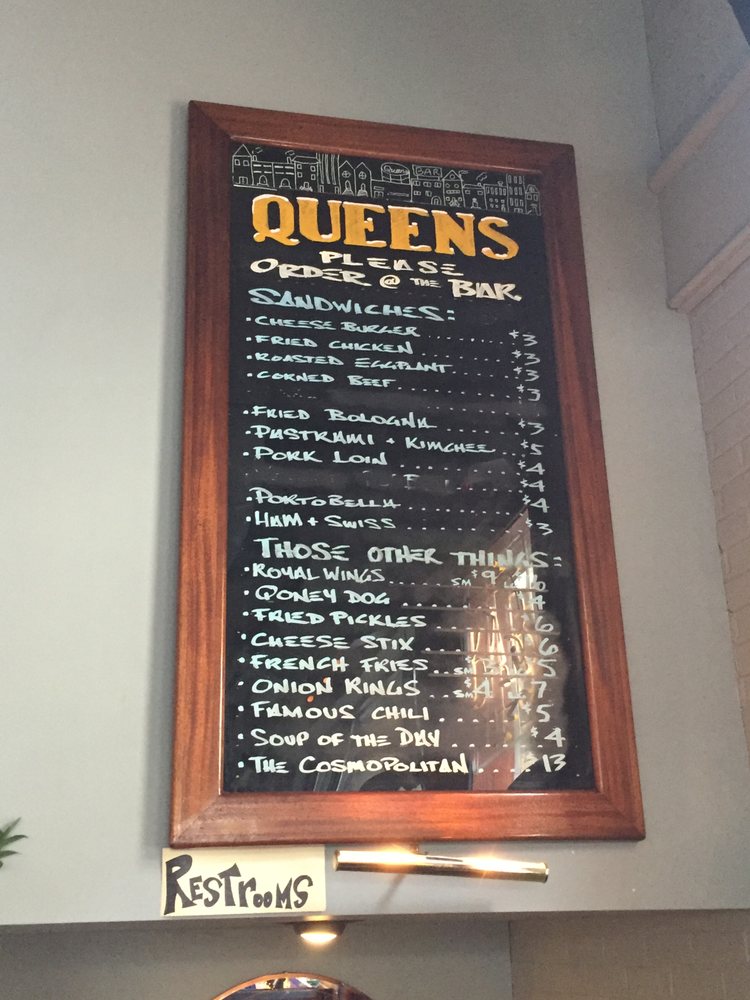 Queens BAR
QUEENS
PLEASE
ORDER @ THE BAR.
SANDWICHES:
• CHEESE BURGER ........ $3
• FRIED CHICKEN ........ $3
• ROASTED EGGPLANT ...... $3
• CORNED BEEF .......... $3
• FRIED BOLOGNA ........ $3
• PASTRAMI + KIMCHEE ... $5
• PORK LOIN ............ $4
$4
• PORTOBELLA ........... $4
• HAM + SWISS .......... $3
THOSE OTHER THINGS:
• ROYAL WINGS .... SM $9
• QONEY DOG ........... $4
• FRIED PICKLES ....... $6
• CHEESE STIX ......... $6
• FRENCH FRIES .. SM 5
• ONION RINGS ... SM $4 7
• FAMOUS CHILI ........ $5
• SOUP OF THE DAY ..... $4
• THE COSMOPOLITAN .... $13
RESTROOMS